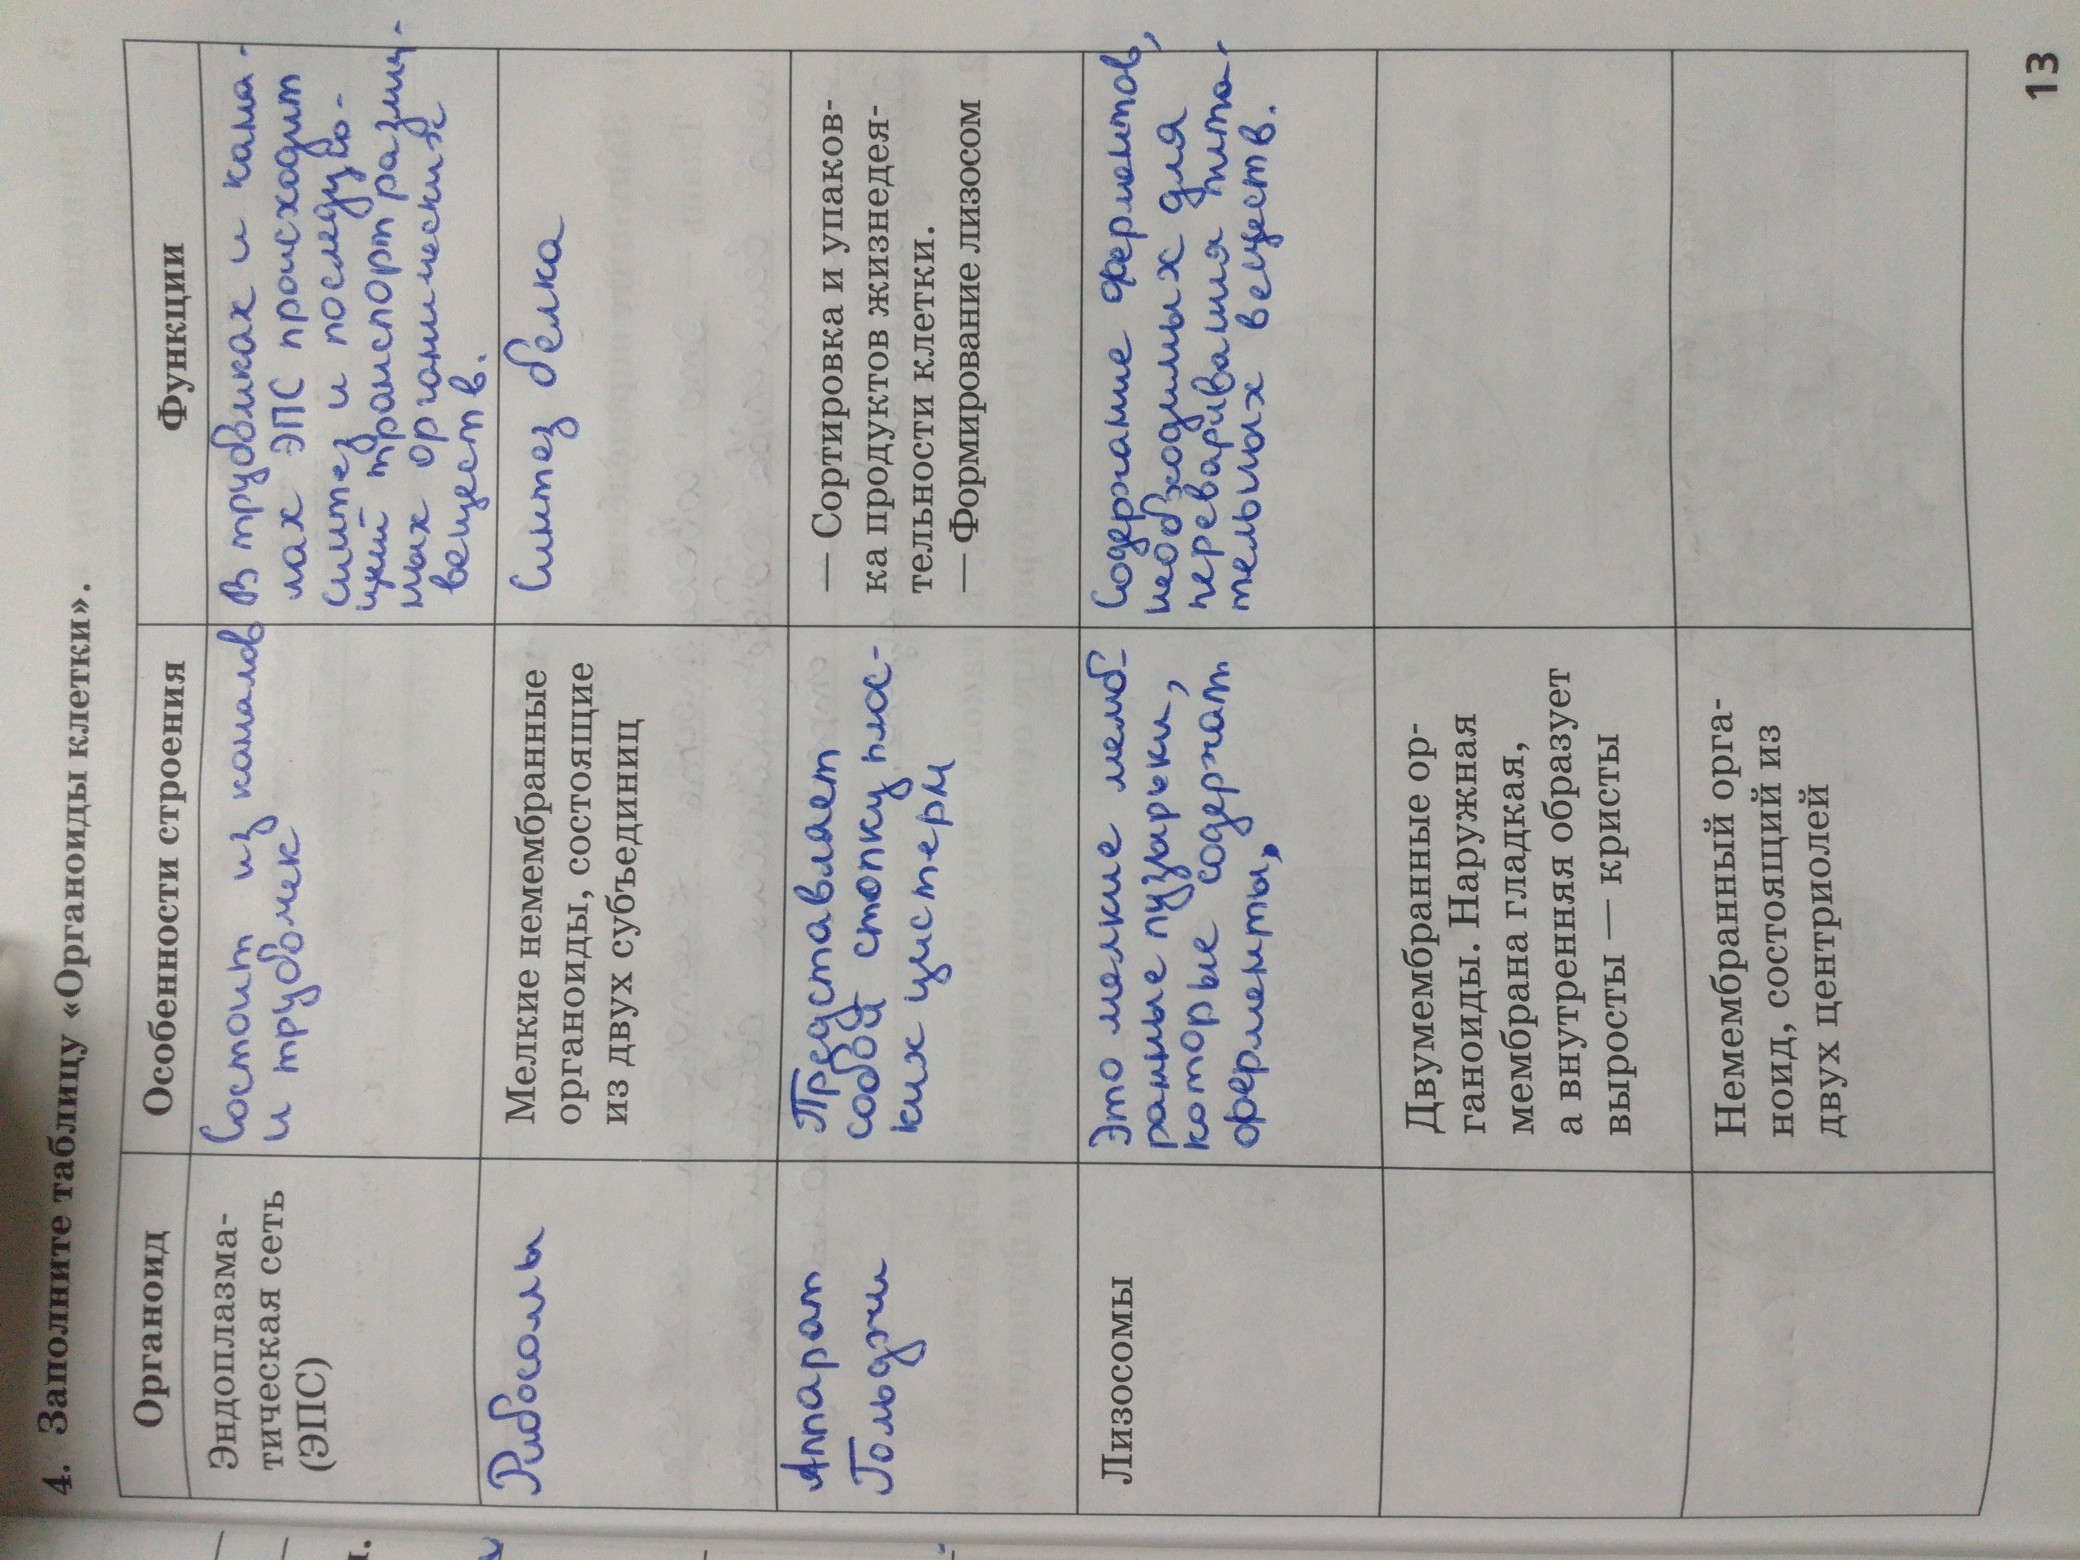 4. Заполните таблицу «Органоиды клетки».
Органоид
Особенности строения
Функции
Эндоплазма-
тическая сеть
(ЭПС)
Состоит из каналов
и трубочек
В трубочках и кана-
лах ЭПС происходит
синтез и последую-
щий транспорт различ-
ных органических
веществ.
Рибосомы
Мелкие немембранные
органоиды, состоящие
из двух субъединиц
Синтез белка
Аппарат
Гольджи
Представляет
собой стопку плос-
ких цистерн
— Сортировка и упаков-
ка продуктов жизнедея-
тельности клетки.
— Формирование лизосом
Лизосомы
Это мелкие мемб-
ранные пузырьки,
которые содержат
ферменты,
Содержание ферментов,
необходимых для
переваривания пита-
тельных веществ.
Двумембранные ор-
ганоиды. Наружная
мембрана гладкая,
а внутренняя образует
выросты — кристы
Немембранный орга-
ноид, состоящий из
двух центриолей
13